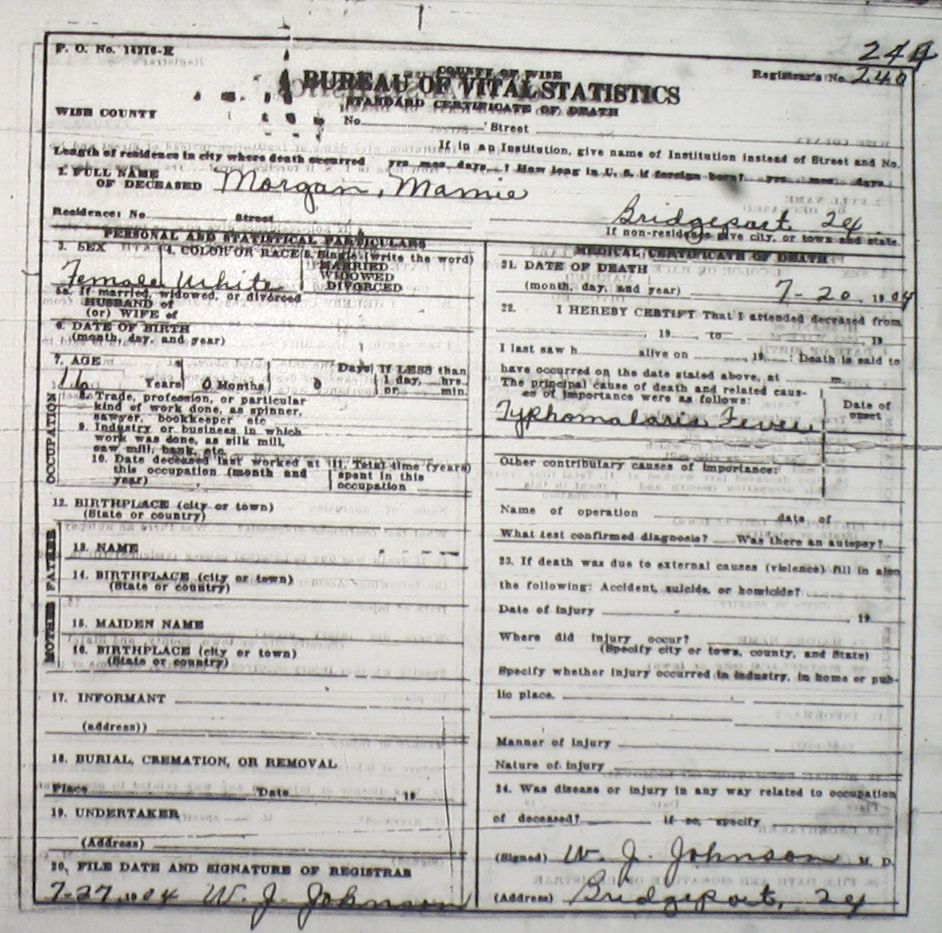 244
F. O. No. 14216-E
COUNTY OF WISE
Registrar's No. 240
BUREAU OF VITAL STATISTICS
STANDARD CERTIFICATE OF DEATH
WISE COUNTY
No. Street
If in an Institution, give name of Institution instead of Street and No.
Length of residence in city where death occurred yrs mos. days. How long in U. S. if foreign born? yrs mos. days
1. FULL NAME
OF DECEASED Morgan, Mamie
Residence: No Street Bridgeport
If non-residence give city, or town and state
PERSONAL AND STATISTICAL PARTICULARS
3. SEX 4. COLOR OR RACE 5. Single (write the word)
MARRIED
WIDOWED
DIVORCED
Female White
5a. If married, widowed, or divorced
HUSBAND of
(or) WIFE of
6. DATE OF BIRTH
(month, day, and year)
7. AGE
16 Years 0 Months 0 Days If LESS than
1 day, hrs.
or min.
OCCUPATION
8. Trade, profession, or particular
kind of work done, as spinner,
sawyer, bookkeeper etc
9. Industry or business in which
work was done, as silk mill,
saw mill, bank, etc.
10. Date deceased last worked at
this occupation (month and
year)
11. Total time (years)
spent in this
occupation
12. BIRTHPLACE (city or town)
(State or country)
FATHER
13. NAME
14. BIRTHPLACE (city or town)
(State or country)
MOTHER
15. MAIDEN NAME
16. BIRTHPLACE (city or town)
(State or country)
17. INFORMANT
(address))
18. BURIAL, CREMATION, OR REMOVAL
Place Date 19
19. UNDERTAKER
(Address)
20. FILE DATE AND SIGNATURE OF REGISTRAR
7-27-1904 W. J. Johnson
MEDICAL CERTIFICATE OF DEATH
21. DATE OF DEATH
(month, day, and year) 7-20 1904
22. I HEREBY CERTIFY That I attended deceased from
, 19 , to , 19
I last saw h alive on , 19 . Death is said to
have occurred on the date stated above, at m.
The principal cause of death and related caus-
es of importance were as follows:
Date of
onset
Typhomalaria Fever
Other contributary causes of importance:
Name of operation date of
What test confirmed diagnosis? Was there an autopsy?
23. If death was due to external causes (violence) fill in also
the following: Accident, suicide, or homicide?
Date of injury 19
Where did injury occur?
(Specify city or town, county, and State)
Specify whether injury occurred in industry, in home or pub-
lic place.
Manner of injury
Nature of injury
24. Was disease or injury in any way related to occupation
of deceased? if so, specify
(Signed) W. J. Johnson M. D.
(Address) Bridgeport,